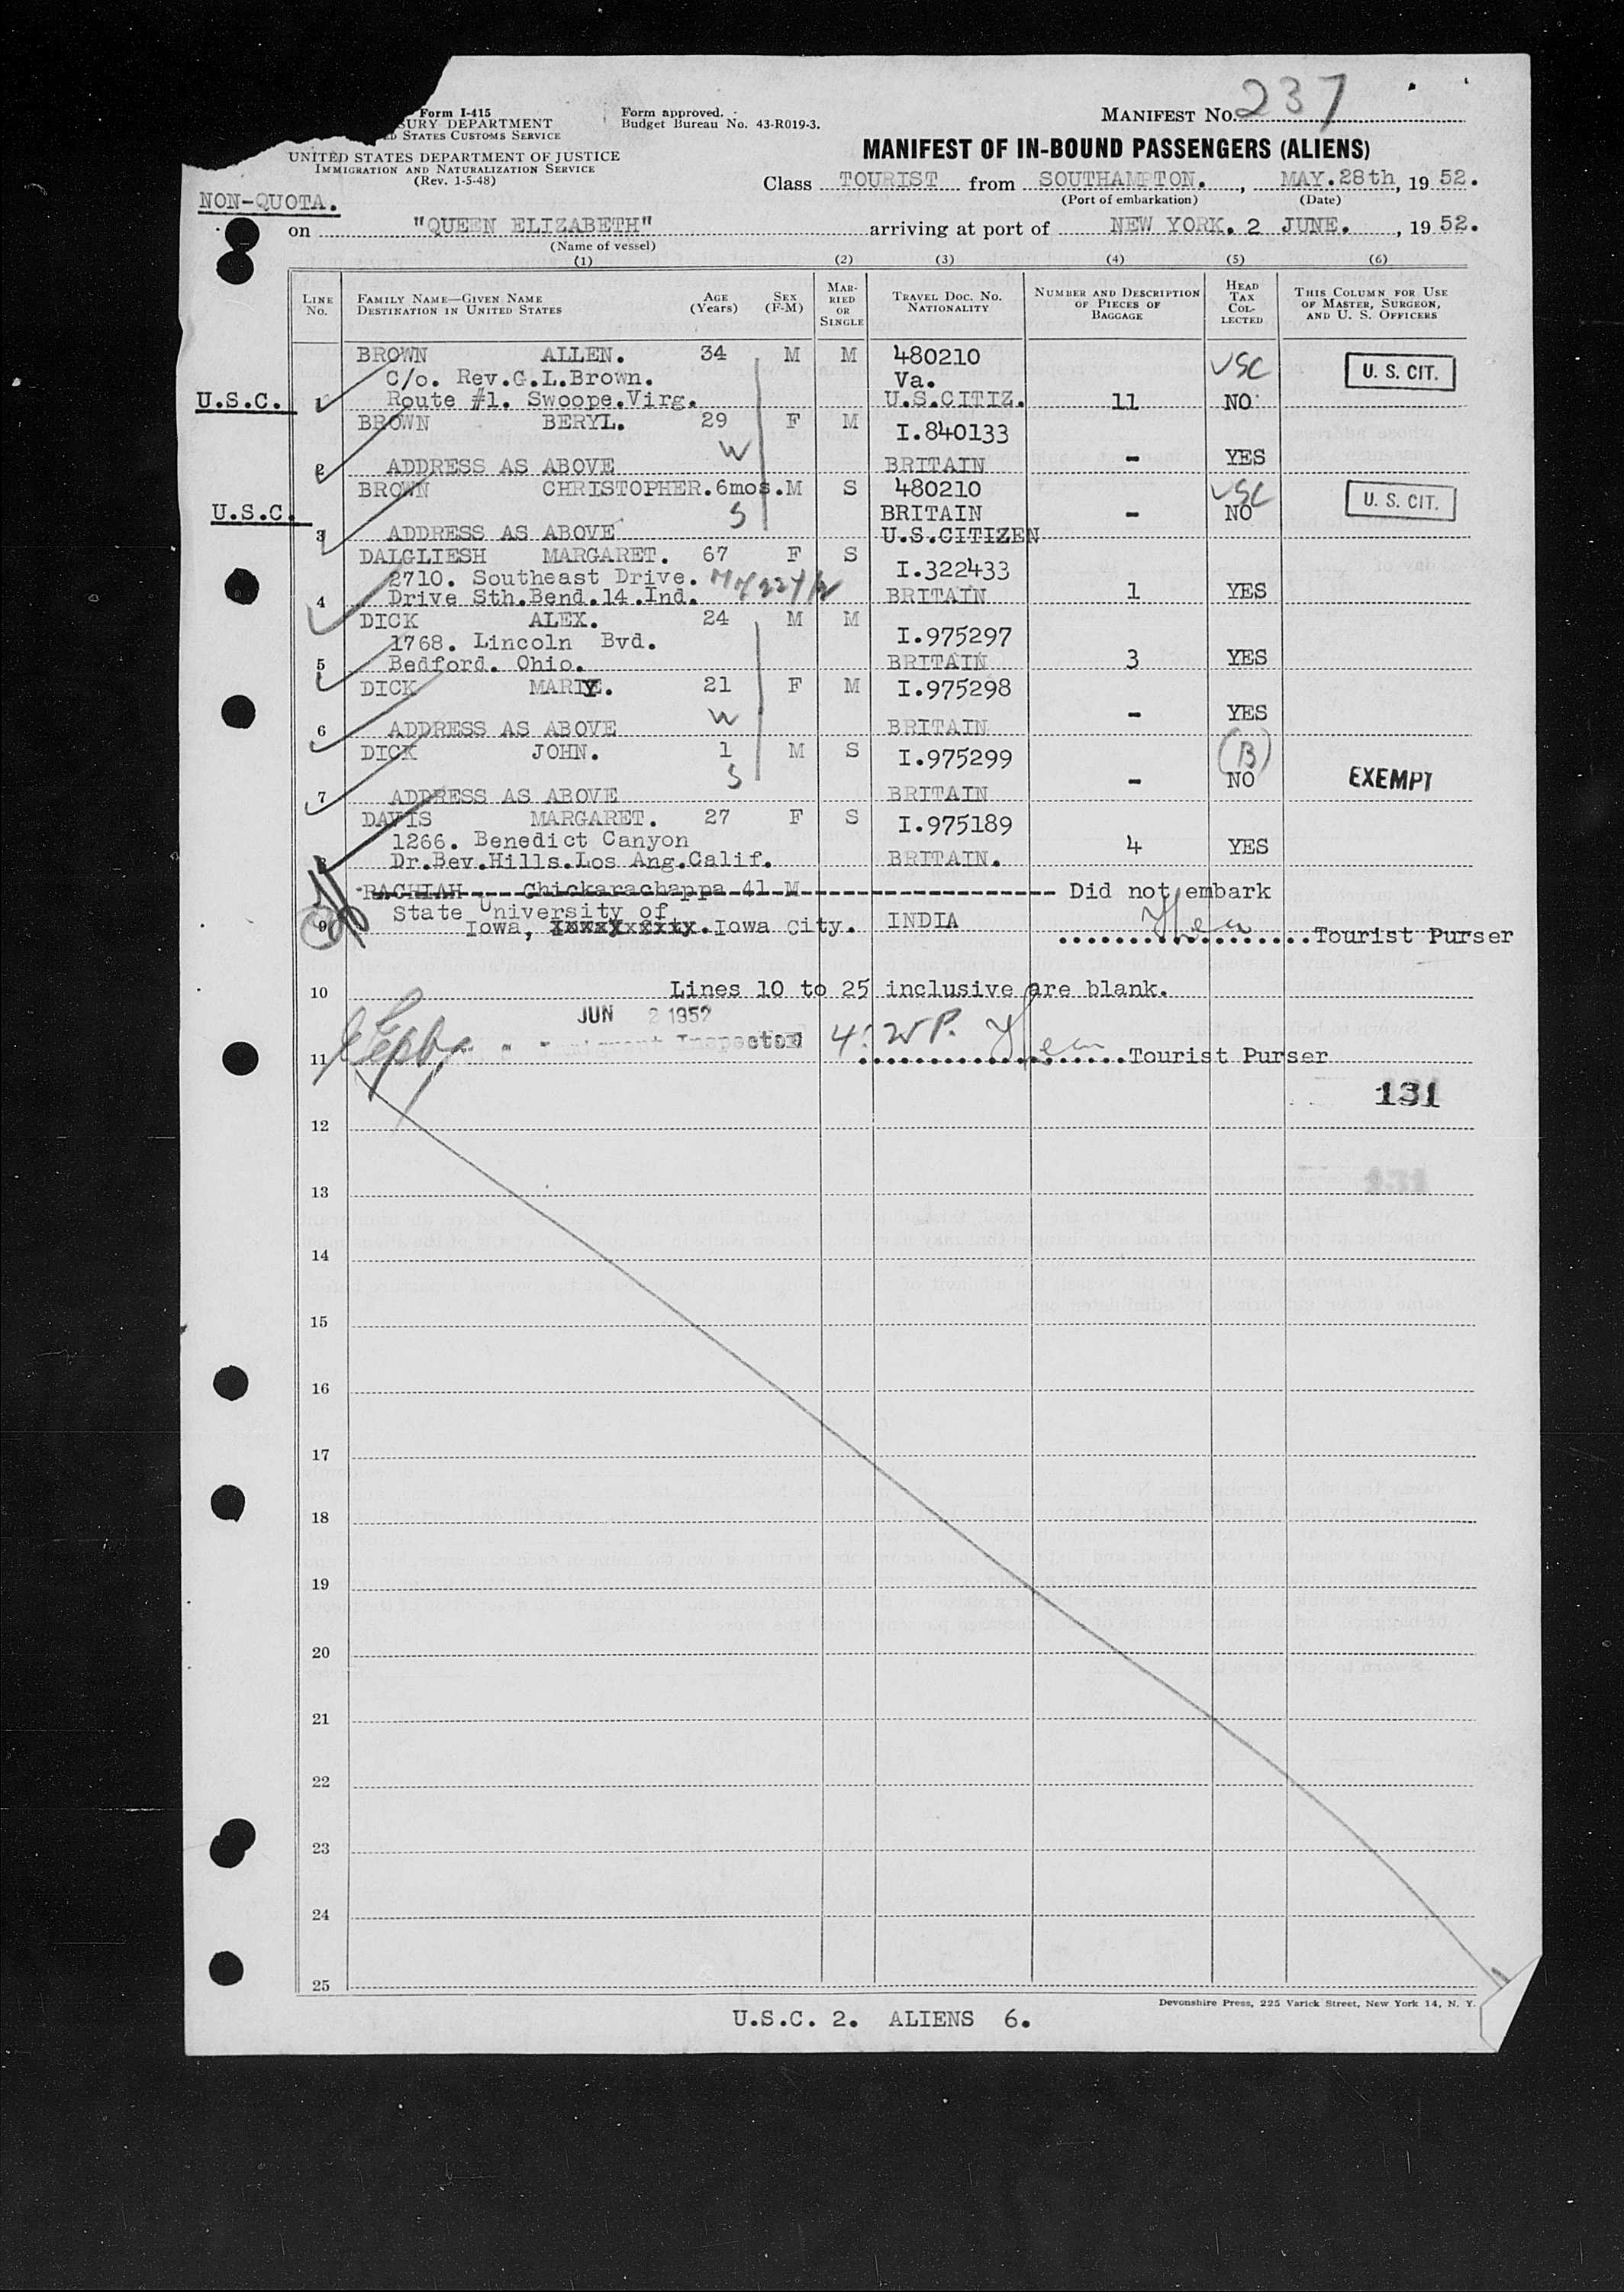 Form I-415
SURY DEPARTMENT
D STATES CUSTOMS SERVICE
UNITED STATES DEPARTMENT OF JUSTICE
IMMIGRATION AND NATURALIZATION SERVICE
(Rev. 1-5-48)
Form approved.
Budget Bureau No. 43-R019-3.
MANIFEST NO. 237
MANIFEST OF IN-BOUND PASSENGERS (ALIENS)
Class TOURIST from SOUTHAMPTON. , MAY.28th, 19 52.
(Port of embarkation) (Date)
NON-QUOTA.
on "QUEEN ELIZABETH" arriving at port of NEW YORK. 2 JUNE. , 19 52.
(Name of vessel)
(1) (2) (3) (4) (5) (6)
LINE NO. FAMILY NAME—GIVEN NAME DESTINATION IN UNITED STATES AGE (Years) SEX (F-M) MARRIED OR SINGLE TRAVEL DOC. NO. NATIONALITY NUMBER AND DESCRIPTION OF PIECES OF BAGGAGE HEAD TAX COLLECTED THIS COLUMN FOR USE OF MASTER, SURGEON, AND U. S. OFFICERS
BROWN ALLEN. 34 M M 480210 USC U. S. CIT.
C/o. Rev.G.L.Brown. Va.
U.S.C. 1 Route #1. Swoope.Virg. U.S.CITIZ. 11 NO
BROWN BERYL. 29 F M I.840133
W
2 ADDRESS AS ABOVE BRITAIN - YES
BROWN CHRISTOPHER. 6mos. M S 480210 USC U. S. CIT.
U.S.C. S BRITAIN - NO
3 ADDRESS AS ABOVE U.S.CITIZEN
DALGLIESH MARGARET. 67 F S I.322433
2710. Southeast Drive.
4 Drive Sth.Bend.14.Ind. BRITAIN 1 YES
DICK ALEX. 24 M M I.975297
1768. Lincoln Bvd.
5 Bedford. Ohio. BRITAIN 3 YES
DICK MARY. 21 F M I.975298
W
6 ADDRESS AS ABOVE BRITAIN - YES
DICK JOHN. 1 M S I.975299 (B)
S NO EXEMPT
7 ADDRESS AS ABOVE BRITAIN -
DAVIS MARGARET. 27 F S I.975189
1266. Benedict Canyon 4 YES
8 Dr.Bev.Hills.Los Ang.Calif. BRITAIN.
RACHIAH Chickarachappa 41 M Did not embark
State University of
9 Iowa, Iowa City. INDIA Tourist Purser
10 Lines 10 to 25 inclusive are blank.
JUN 2 1952
11 Immigrant Inspector Tourist Purser
131
12
131
13
14
15
16
17
18
19
20
21
22
23
24
25
Devonshire Press, 225 Varick Street, New York 14, N. Y.
U.S.C. 2. ALIENS 6.